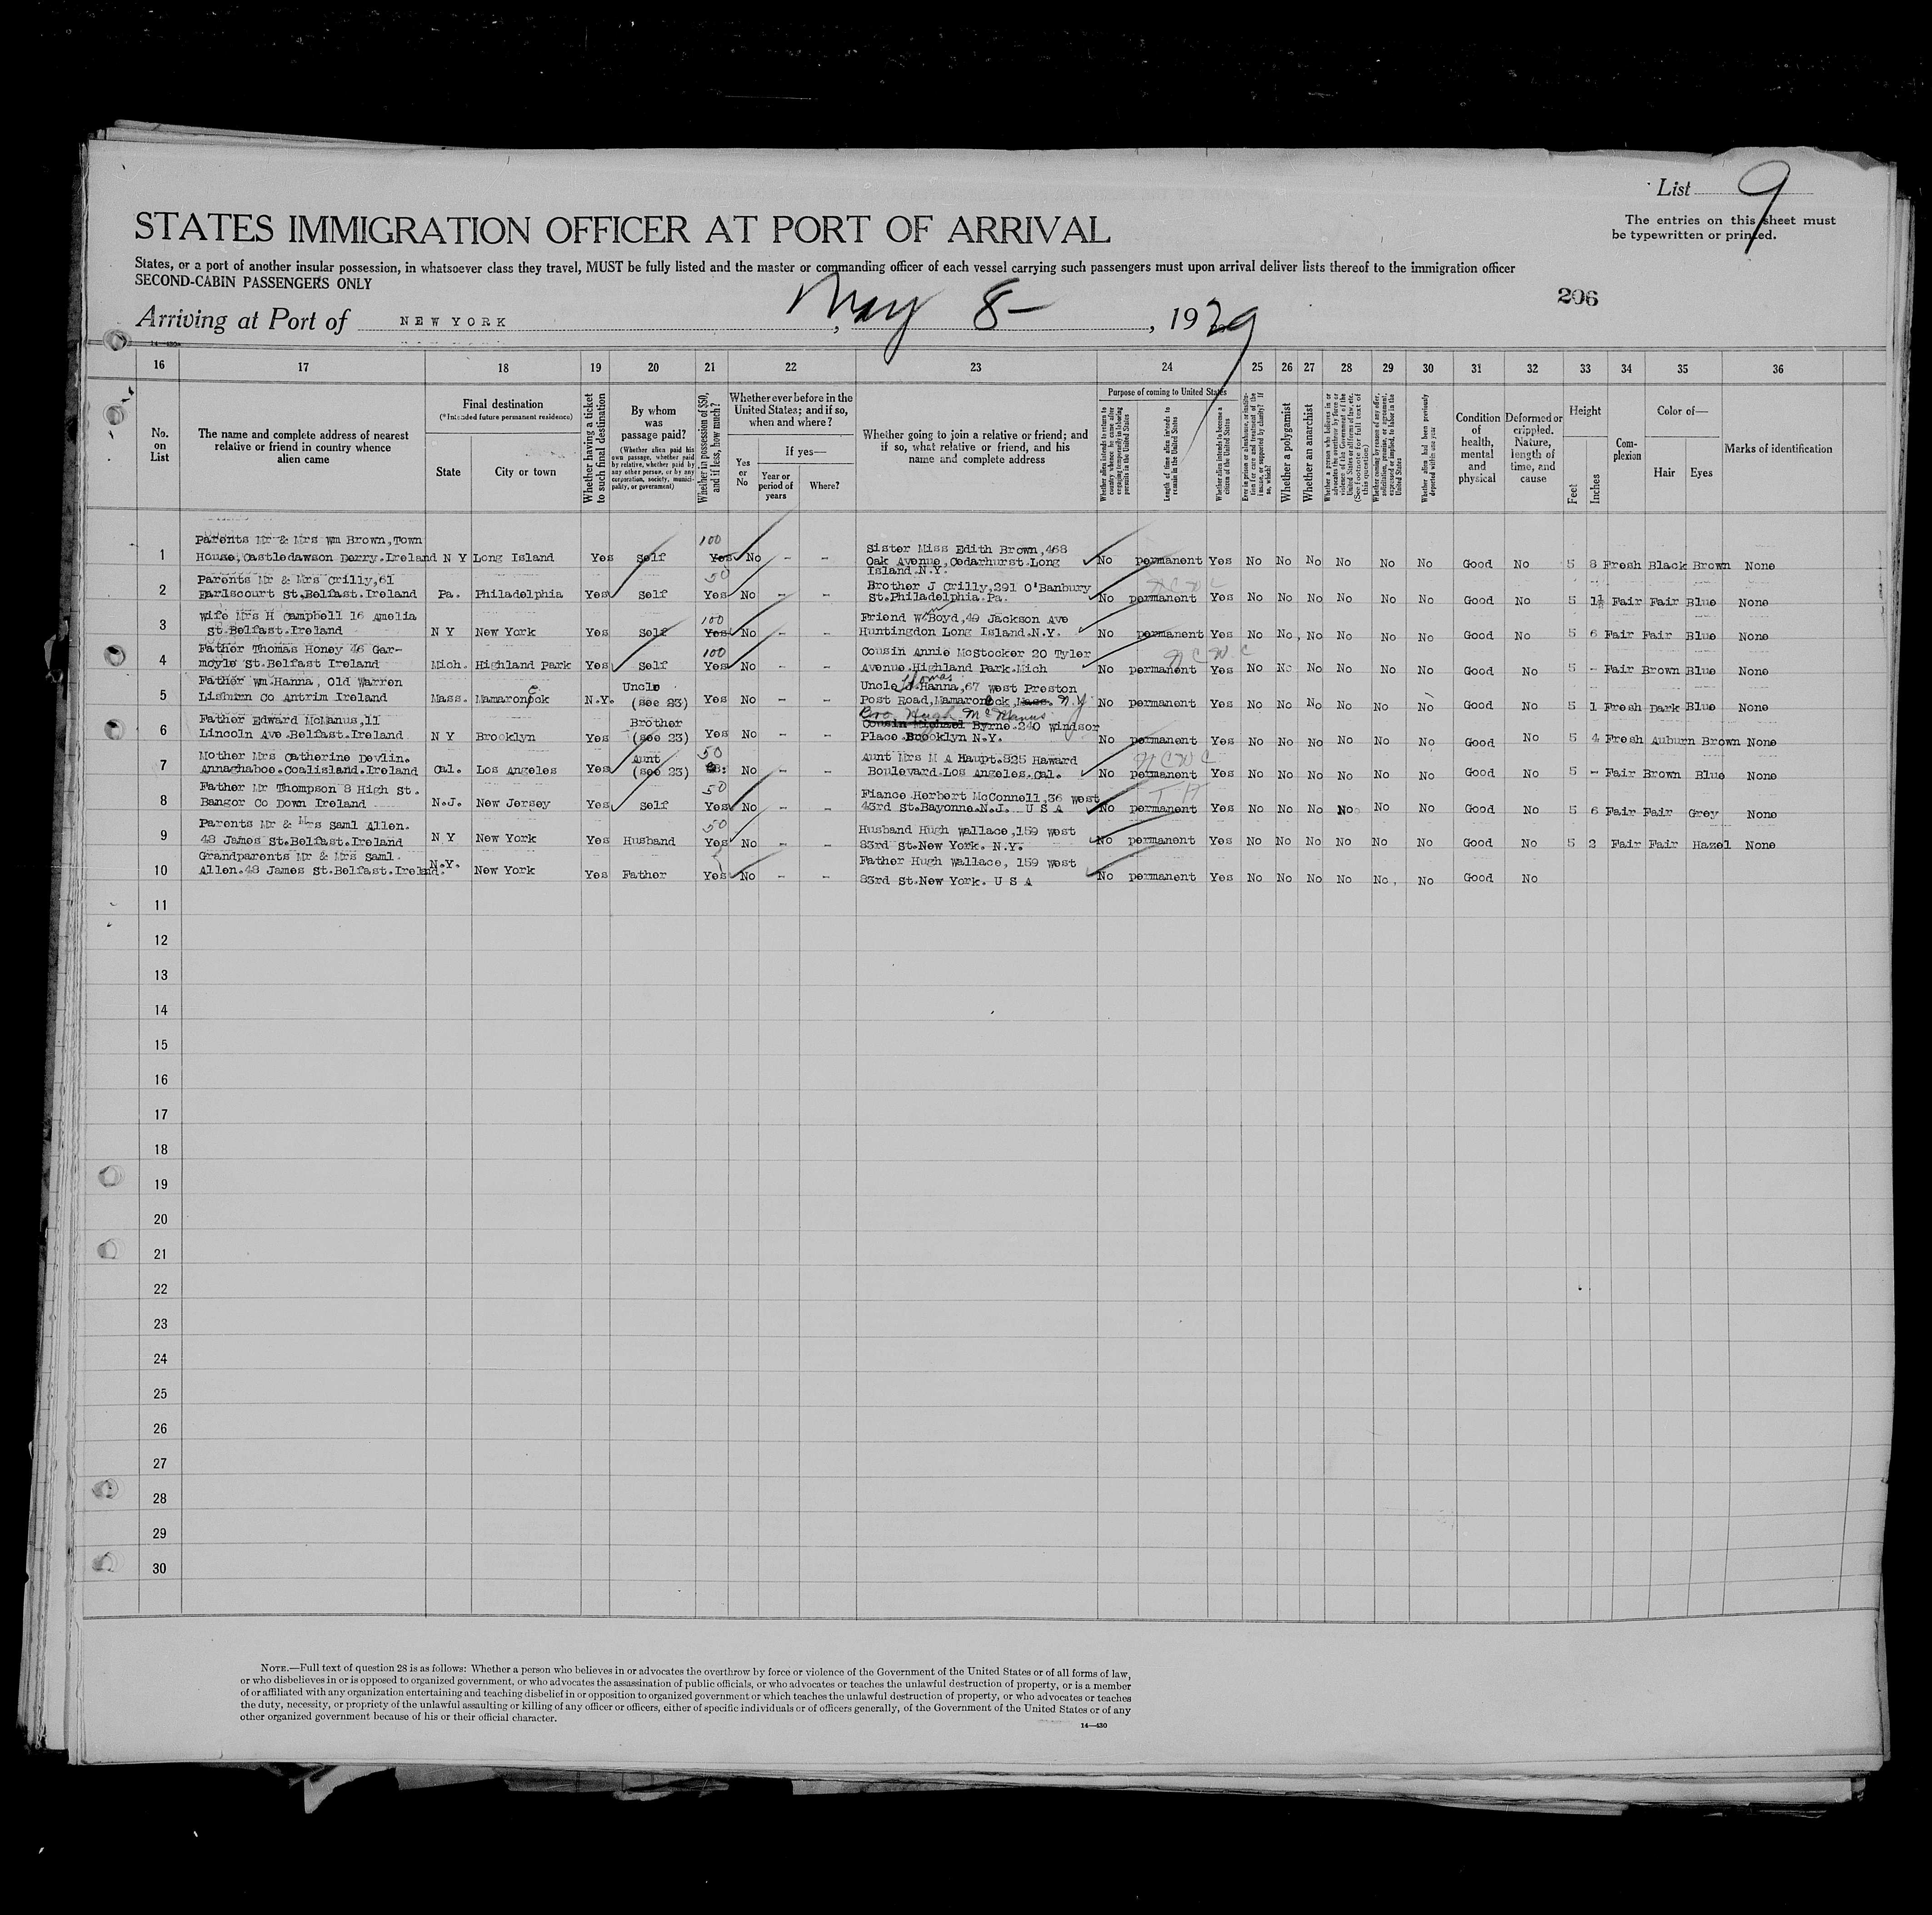 List 9
The entries on this sheet must
be typewritten or printed.
STATES IMMIGRATION OFFICER AT PORT OF ARRIVAL
States, or a port of another insular possession, in whatsoever class they travel, MUST be fully listed and the master or commanding officer of each vessel carrying such passengers must upon arrival deliver lists thereof to the immigration officer
SECOND-CABIN PASSENGERS ONLY
206
Arriving at Port of NEW YORK, May 8-, 1929
14—430
16 17 18 19 20 21 22 23 24 25 26 27 28 29 30 31 32 33 34 35 36
No. on List
The name and complete address of nearest relative or friend in country whence alien came
Final destination
(*Intended future permanent residence)
State
City or town
Whether having a ticket to such final destination
By whom was passage paid?
(Whether alien paid his own passage, whether paid by relative, whether paid by any other person, or by any corporation, society, municipality, or government)
Whether in possession of $50, and if less, how much?
Whether ever before in the United States; and if so, when and where?
Yes or No
If yes—
Year or period of years
Where?
Whether going to join a relative or friend; and if so, what relative or friend, and his name and complete address
Purpose of coming to United States
Whether alien intends to return to country whence he came after engaging temporarily in laboring pursuits in the United States
Length of time alien intends to remain in the United States
Whether alien intends to become a citizen of the United States
Ever in prison or almshouse, or institution for care and treatment of the insane, or supported by charity? If so, which?
Whether a polygamist
Whether an anarchist
Whether a person who believes in or advocates the overthrow by force or violence of the Government of the United States or all forms of law, etc. (See footnote for full text of this question)
Whether coming by reason of any offer, solicitation, promise, or agreement, expressed or implied, to labor in the United States
Whether alien had been previously deported within one year
Condition of health, mental and physical
Deformed or crippled. Nature, length of time, and cause
Height
Feet
Inches
Complexion
Color of—
Hair
Eyes
Marks of identification
1 Parents Mr & Mrs Wm Brown, Town House, Castledawson Derry. Ireland N Y Long Island Yes Self 100 Yes No - - Sister Miss Edith Brown, 468 Oak Avenue, Cedarhurst Long Island N.Y. No permanent Yes No No No No No No Good No 5 8 Fresh Black Brown None
2 Parents Mr & Mrs Crilly, 61 Earlscourt St. Belfast. Ireland Pa. Philadelphia Yes Self 50 Yes No - - Brother J Crilly, 291 O'Banbury St. Philadelphia. Pa. No permanent Yes No No No No No No Good No 5 1½ Fair Fair Blue None
3 Wife Mrs H Campbell 16 Amelia St. Belfast. Ireland N Y New York Yes Self 100 Yes No - - Friend Wm Boyd, 49 Jackson Ave Huntingdon Long Island. N.Y. No permanent Yes No No, No No No No Good No 5 6 Fair Fair Blue None
4 Father Thomas Honey 46 Garmoyle St. Belfast Ireland Mich. Highland Park Yes Self 100 Yes No - - Cousin Annie McStocker 20 Tyler Avenue. Highland Park. Mich N C W C No permanent Yes No No No No No No Good No 5 - Fair Brown Blue None
5 Father Wm Hanna, Old Warren Lisburn Co Antrim Ireland Mass. Mamaroneck N.Y. Uncle (see 23) Yes No - - Uncle Thomas Hanna, 67 West Preston Post Road, Mamaroneck, Mass. N.Y No permanent Yes No No No No No No Good No 5 1 Fresh Dark Blue None
6 Father Edward McManus, 11 Lincoln Ave. Belfast. Ireland N Y Brooklyn Yes Brother (see 23) Yes No - - Bro. Hugh McManus Cousin Michael Byrne. 240 Windsor Place. Brooklyn N.Y. No permanent Yes No No No No No No Good No 5 4 Fresh Auburn Brown None
7 Mother Mrs Catherine Devlin. Annaghaboe. Coalisland. Ireland Cal. Los Angeles Yes Aunt (see 23) 50 No - - Aunt Mrs M A Haupt. 825 Haward Boulevard. Los Angeles. Cal. N C W C No permanent Yes No No No No No No Good No 5 - Fair Brown Blue None
8 Father Mr Thompson 8 High St. Bangor Co Down Ireland N.J. New Jersey Yes Self 50 Yes No - - Fiance Herbert McConnell, 36 West 43rd St. Bayonne. N.J. U S A No permanent Yes No No No No No No Good No 5 6 Fair Fair Grey None
9 Parents Mr & Mrs Saml Allen. 48 James St. Belfast. Ireland N Y New York Yes Husband 50 Yes No - - Husband Hugh Wallace, 159 West 83rd St. New York. N.Y. No permanent Yes No No No No No No Good No 5 2 Fair Fair Hazel None
10 Grandparents Mr & Mrs Saml. Allen. 48 James St. Belfast. Ireland. N.Y. New York Yes Father Yes No - - Father Hugh Wallace, 159 West 83rd St. New York. U S A No permanent Yes No No No No No, No Good No
11
12
13
14
15
16
17
18
19
20
21
22
23
24
25
26
27
28
29
30
NOTE.—Full text of question 28 is as follows: Whether a person who believes in or advocates the overthrow by force or violence of the Government of the United States or of all forms of law,
or who disbelieves in or is opposed to organized government, or who advocates the assassination of public officials, or who advocates or teaches the unlawful destruction of property, or is a member
of or affiliated with any organization entertaining and teaching disbelief in or opposition to organized government or which teaches the unlawful destruction of property, or who advocates or teaches
the duty, necessity, or propriety of the unlawful assaulting or killing of any officer or officers, either of specific individuals or of officers generally, of the Government of the United States or of any
other organized government because of his or their official character.
14—430